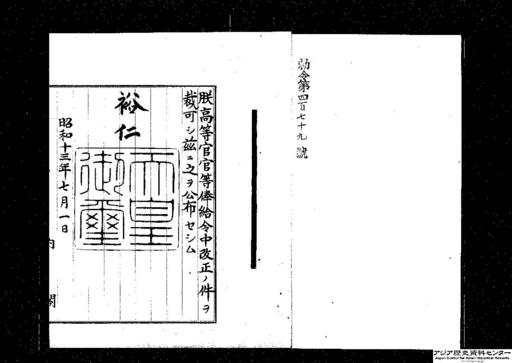 勅令第四百七十九號
朕高等官官等俸給令中改正ノ件ヲ
裁可シ茲ニ之ヲ公布セシム
裕仁
天皇御璽
昭和十三年七月一日
内閣
アジア歴史資料センター
Japan Center for Asian Historical Records